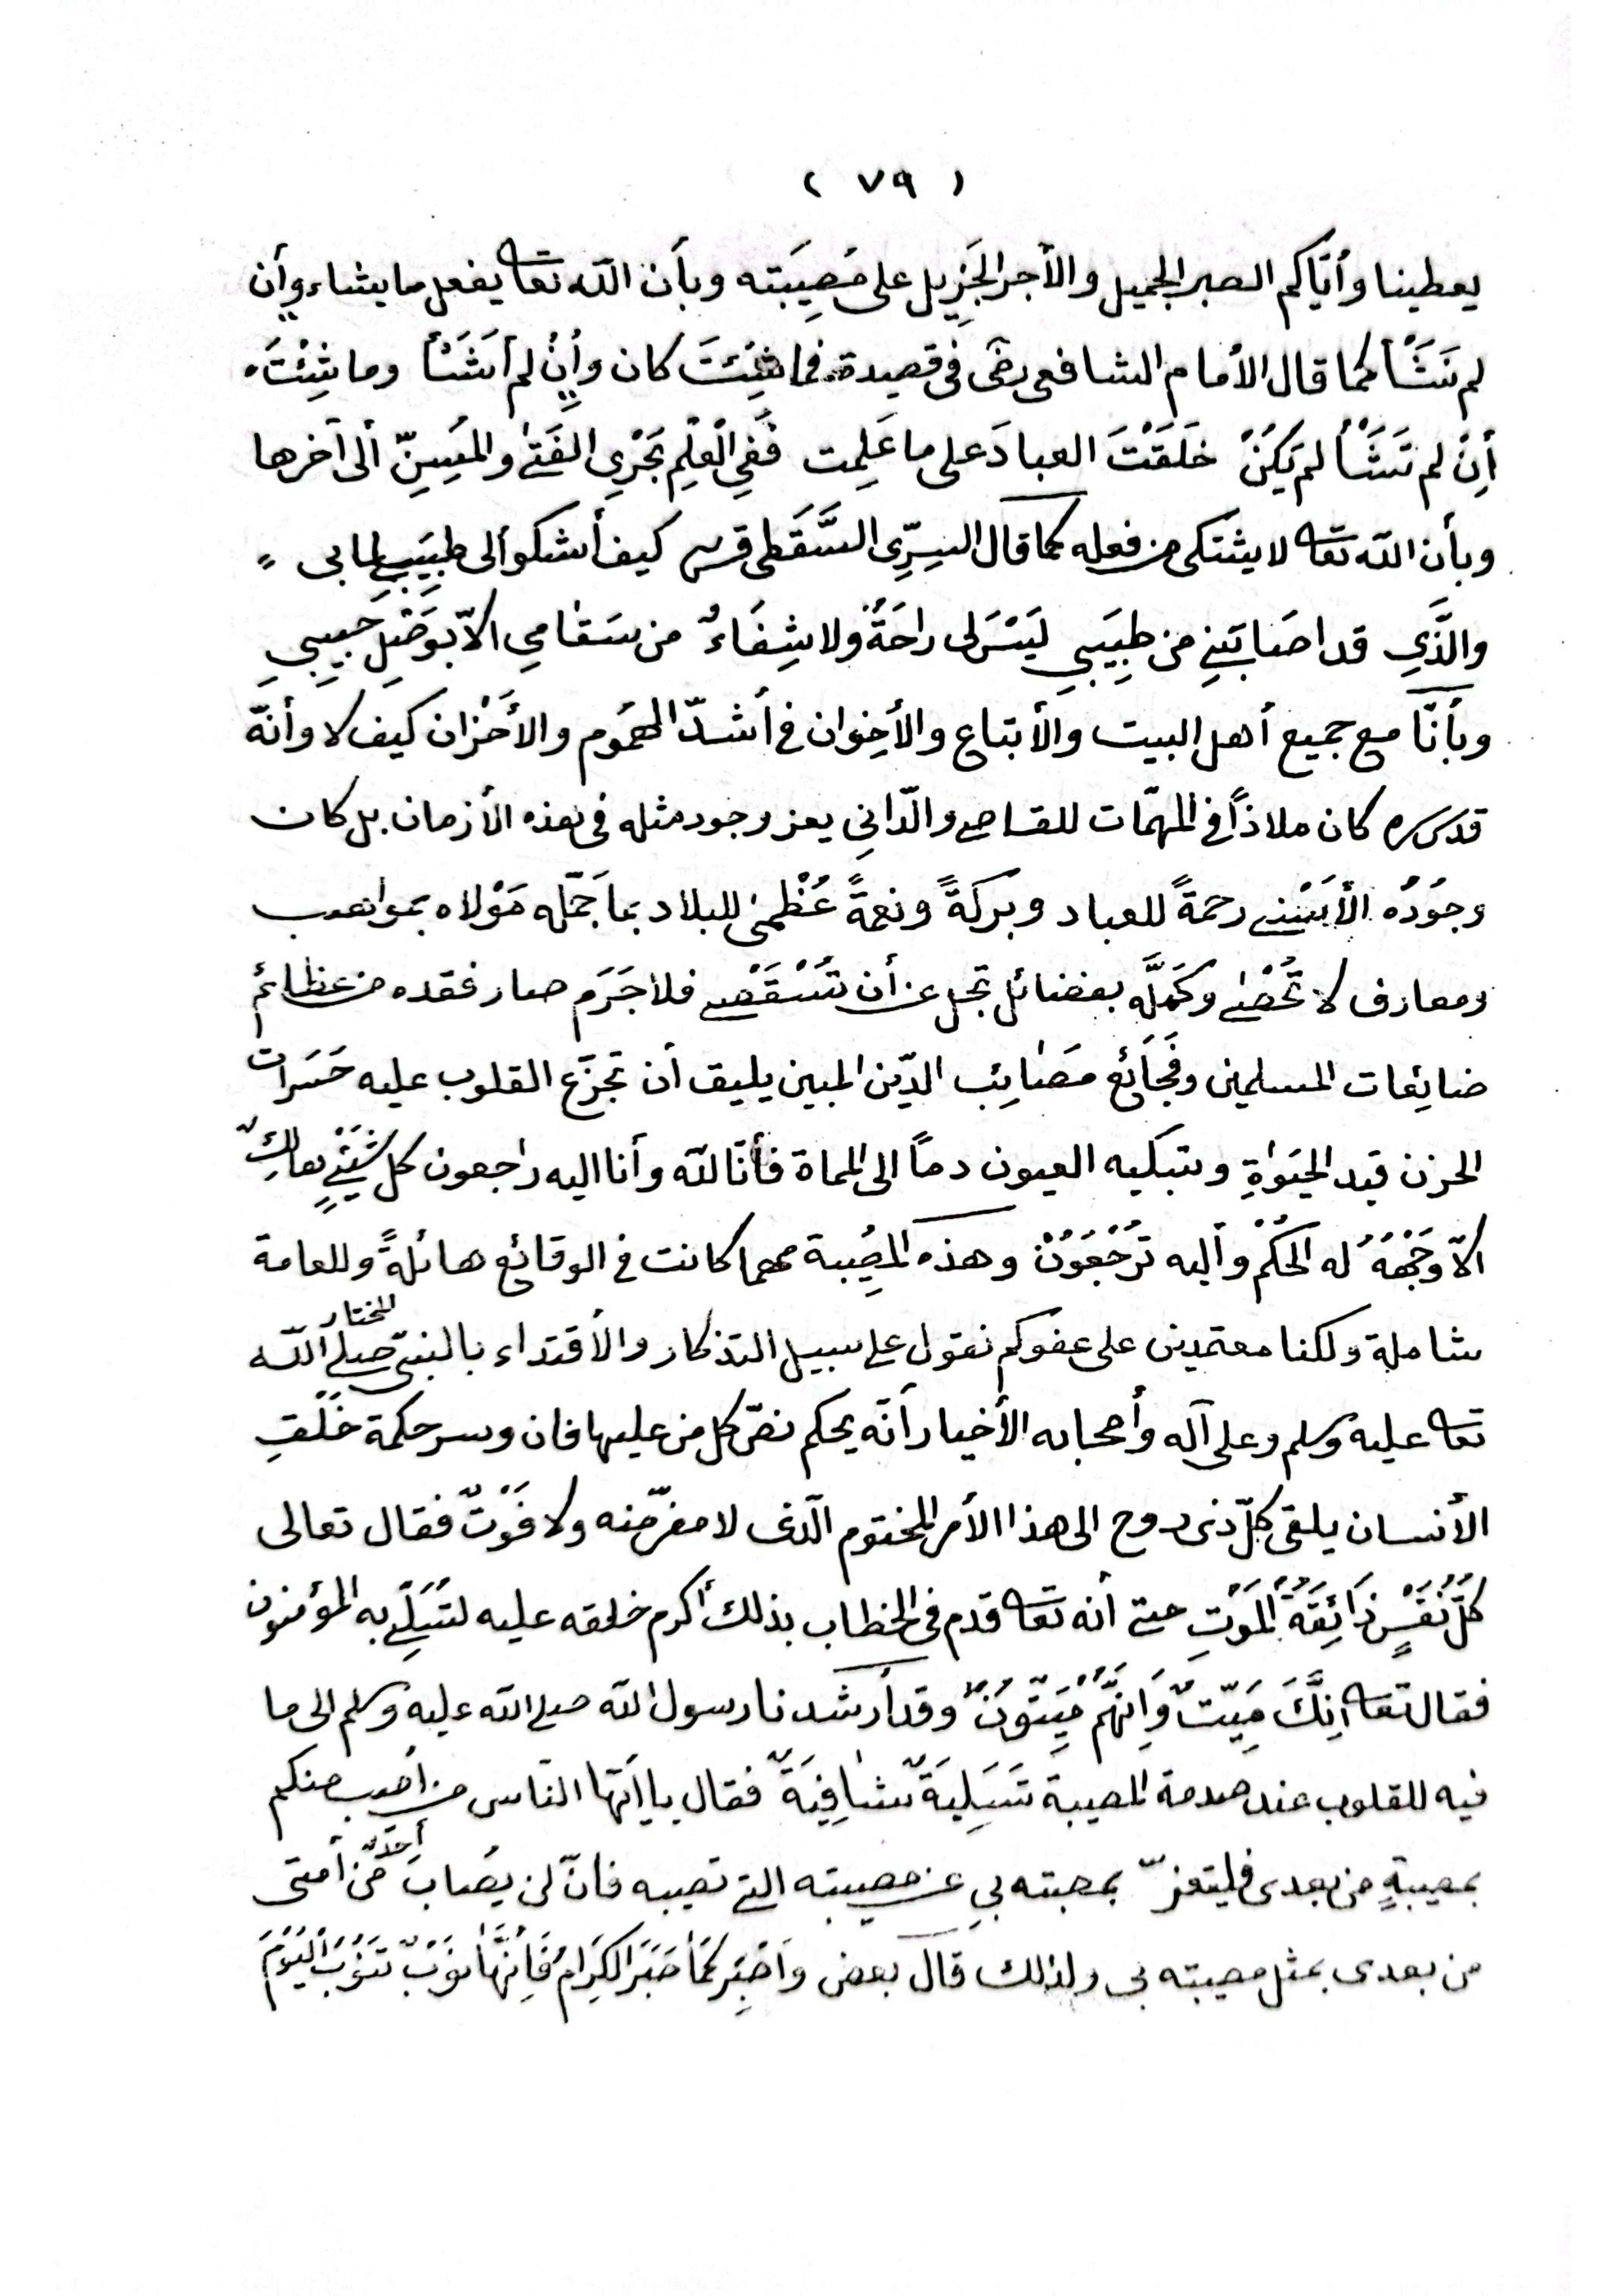 ( ٧٩ )
يعطينا وأيّاكم الصبر الجميل والأجر الجَزِيل على مُصِيبَته وبأن الله تعا يفعل ما يشاء وإن
لم نَشَأْ كما قال الأمام الشافعى رضى فى قصيدة فما شِئتَ كان وإِنْ لم أَشَأْ وما شِئْتَ
أِنْ لم تَشَأْ لم يَكُنْ خَلَقْتَ العبادَ على ما عَلِمت فَفِي الْعِلْمِ يَجْرِي الفَتىٰ والمُسِنّ ألى آخرها
وبأن الله تعا لا يشتكى من فعله كما قال السِرِّى السَّقَطى قدس كيف أشكو ألى طبِيَبِي لما بى
والَّذِي قد اصَابَنِي من طبِيَبِي لَيْسَ لى راحَةٌ ولا شِفَاءٌ من سَقامِي الاّ بوَصْلِ حَبِيبِي
وبأنّا مع جميع أهل البيت والأتباع والأخوان فى أشدّ الهمُوم والأَحْزان كيف لا وأنّه
قدس سره كان ملاذاً فى المهمّات للقاصى والدّانِي يعز وجود مثله فى هذه الأزمان بل كان
وجُودُه الأَسْنى رحمةً للعباد وبَركَةً ونعمةً عُظْمىٰ للبلاد بما جَمّله مَوْلاه بمواهب
ومعارف لا تُحْصٰى وكَمَّلَه بفضائل تجل عن أن تُسْتَقْصى فلا جَرَم صار فقده من عظائم
ضايِعات المسلمين وفَجَائع مَصَائِب الدّين المبين يليق أن تجزَع القلوب عليه حَسَرات
الحزن قيد الحَيَوٰةِ وتبكيه العيون دماً الى المماة فأنّا لله وأنا اليه راجعون كل شَيْئٍ هالِكٌ
الاّ وَجْهَهُ له الحُكْم وأليه تُرْجَعُوُنْ وهذه المصِيبة مهما كانت فى الوقائع هائلةً وللعامة
شاملة ولكنا معتمدين على عفوكم نقول على سبيل التذكار والأقتداء بالنبىّ المختار صلى الله
تعا عليه وسلم وعلى آله وأصحابه الأخيار أنّه يحكم نصّ كل من عليها فان وسر حكمة خَلْقِ
الأنسان يلقى كلّ ذى روح الى هذا الأمر المختوم الّذى لا مفرّ منه ولا فَوْتٌ فقال تعالى
كلُّ نَفْسٍ ذَائِقَةُ المَوْتِ حتى أنه تعا قدم فى الخطاب بذلك أكرم خلقه عليه لتَسَلّى به المؤمنون
فقال تعا انِنَّكَ مَيِّتٌ وَاِنَّهُمْ مَيِّتُونٌ وقد أرشدنا رسول الله صلى الله عليه وسلم الى ما
فيه للقلوب عند صدمة المصيبة تَسْلِيَةٌ شافِيَةٌ فقال يا ايّها الناس من أصيب منكم
بمصيبةٍ من بعدى فليتعزّ بمصبته بِى عن مصيبته التى تصيبه فانّ لن يصُاب أحدٌ مّن أمتى
من بعدى بمثل مصيبته بى ولذلك قال بعض واَصْبِر كَمَا صَبَرَ الكِرَامُ فَأِنَّهَا نوَبٌ تَنوُبُ اليَوْمَ